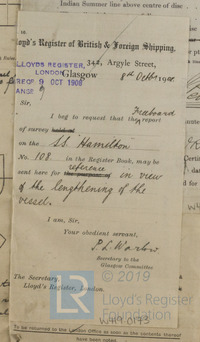 Indian Summer line above centre of disc
Lloyd's Register of British & Foreign Shipping,
342, Argyle Street,
LLOYD'S REGISTER,
LONDON
Glasgow 8th Octbr 1908
REC 9 OCT 1908
ANS
Sir,
I beg to request that the Freeboard report
of survey
on the S.S. Hamilton
No. 108 in the Register Book, may be
sent here for reference in view
of the lengthening of the
vessel.
I am, Sir,
Your obedient servant,
Secretary to the
Glasgow Committee
The Secretary,
Lloyd's Register, London.
© 2019
Lloyd's Register
Foundation
W49 0193
To be returned to the London Office as soon as the contents thereof
have been noted
W49 0193